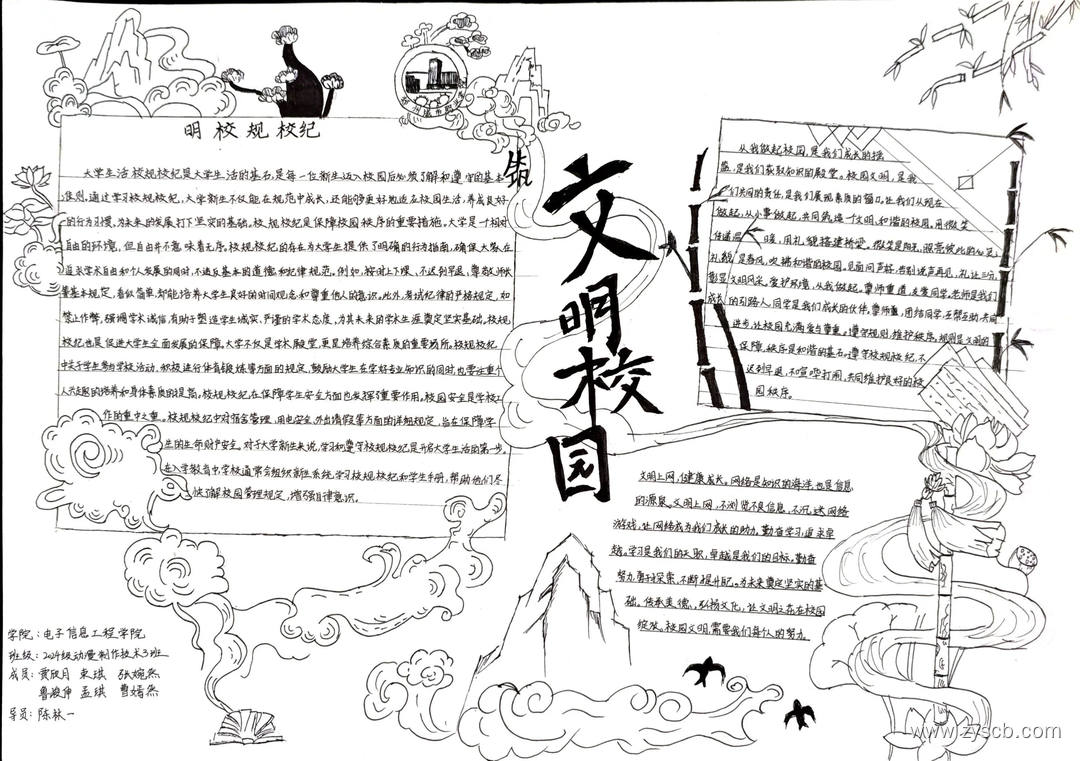 明校规校纪
大学生活校规校纪是大学生活的基石,是每一位新生迈入校园后必须了解和遵守的基本
准则,通过学习校规校纪,大学新生不仅能在规范中成长,还能够更好地适应校园生活,养成良好
的行为习惯,为未来的发展打下坚实的基础。校规校纪是保障校园秩序的重要措施。大学是一个相对
自由的环境,但自由并不意味着无序。校规校纪的存在为大学生提供了明确的行为指南,确保大家在
追求学术自由和个人发展的同时,不违反基本的道德和纪律规范。例如,按时上下课、不迟到早退、尊敬师长
等基本规定,看似简单,却能培养大学生良好的时间观念和尊重他人的意识。此外,考试纪律的严格规定,如
禁止作弊,强调学术诚信,有助于塑造学生诚实、严谨的学术态度,为其未来的学术生涯奠定坚实基础。校规
校纪也是促进大学生全面发展的保障。大学不仅是学术殿堂,更是培养综合素质的重要场所。校规校纪
中关于学生参加学校活动、积极进行体育锻炼等方面的规定,鼓励大学生在学好专业知识的同时,也要注重个
人兴趣的培养和身体素质的提高。校规校纪在保障学生安全方面也发挥了重要作用。校园安全是学校工
作的重中之重。校规校纪中对宿舍管理、用电安全、外出请假等方面的详细规定,旨在保障学
生的生命财产安全。对于大学新生来说,学习和遵守校规校纪是开启大学生活的第一步。
在入学教育中,学校通常会组织新生系统学习校规校纪和学生手册,帮助他们尽
快了解校园管理规定,增强自律意识。
筑
文明校园
从我做起校园,是我们成长的摇
篮,是我们获取知识的殿堂。校园文明,是我
们共同的责任,是我们展现素质的窗口。让我们从现在
做起,从小事做起,共同筑造一个文明、和谐的校园。用微笑
传递温暖,用礼貌搭建桥梁。微笑是阳光,照亮彼此的心灵;
礼貌是春风,吹拂和谐的校园。见面问声好,告别道声再见,礼让三分,
彰显文明风采。爱护环境,从我做起。尊师重道,友爱同学。老师是我们
成长的引路人,同学是我们成长的伙伴。尊师重,团结同学,互帮互助,共同
进步,让校园充满爱与尊重。遵守规则,维护秩序。规则是文明的
保障,秩序是和谐的基石。遵守校规校纪,不
迟到早退,不喧哗打闹,共同维护良好的校
园秩序。
文明上网,健康成长。网络是知识的海洋,也是信息
的源泉。文明上网,不浏览不良信息,不沉迷网络
游戏,让网络成为我们成长的助力。勤奋学习,追求卓
越。学习是我们的天职,卓越是我们的目标。勤奋
努力,勇于探索,不断提升自己。为未来奠定坚实的基
础。传承美德,弘扬文化,让文明之花在校园
绽放。校园文明,需要我们每个人的努力。
学院:电子信息工程学院
班级:2024级动漫制作技术3班
成员:黄欣月 束琪 张婉然
孟琪 曹婧然
导员:陈林一
www.zyscb.com